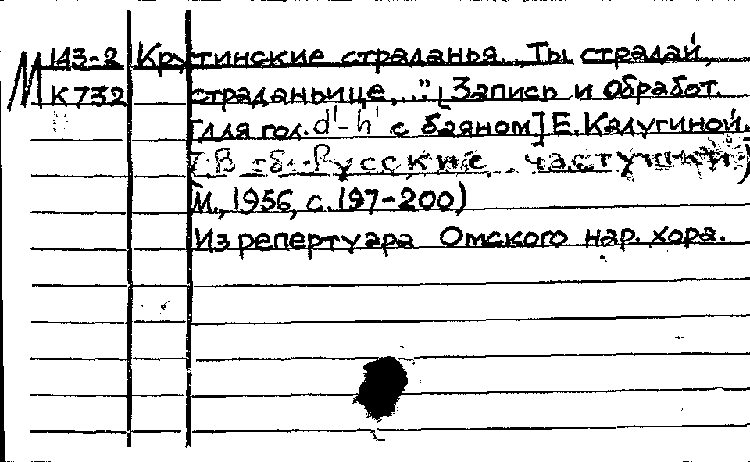 М 143-2 Крутинские страданья. „Ты страдай,
К 732 страданьице,..." [Запись и обработ.
для гол. d'-h' с баяном] Е. Калугиной.
(В сб. Русские частушки
М., 1956, с. 197-200)
Из репертуара Омского нар. хора.